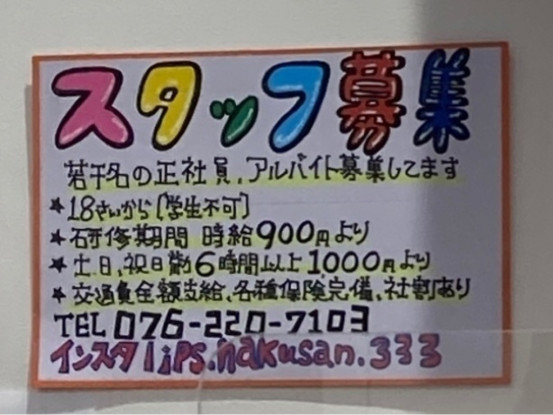 スタッフ募集
若干名の正社員、アルバイト募集してます
★18さいから[学生不可]
★研修期間 時給900円より
★土、日、祝日勤6時間以上1000円より
★交通費全額支給、各種保険完備、社割あり
TEL 076-220-7103
インスタlips.hakusan.333